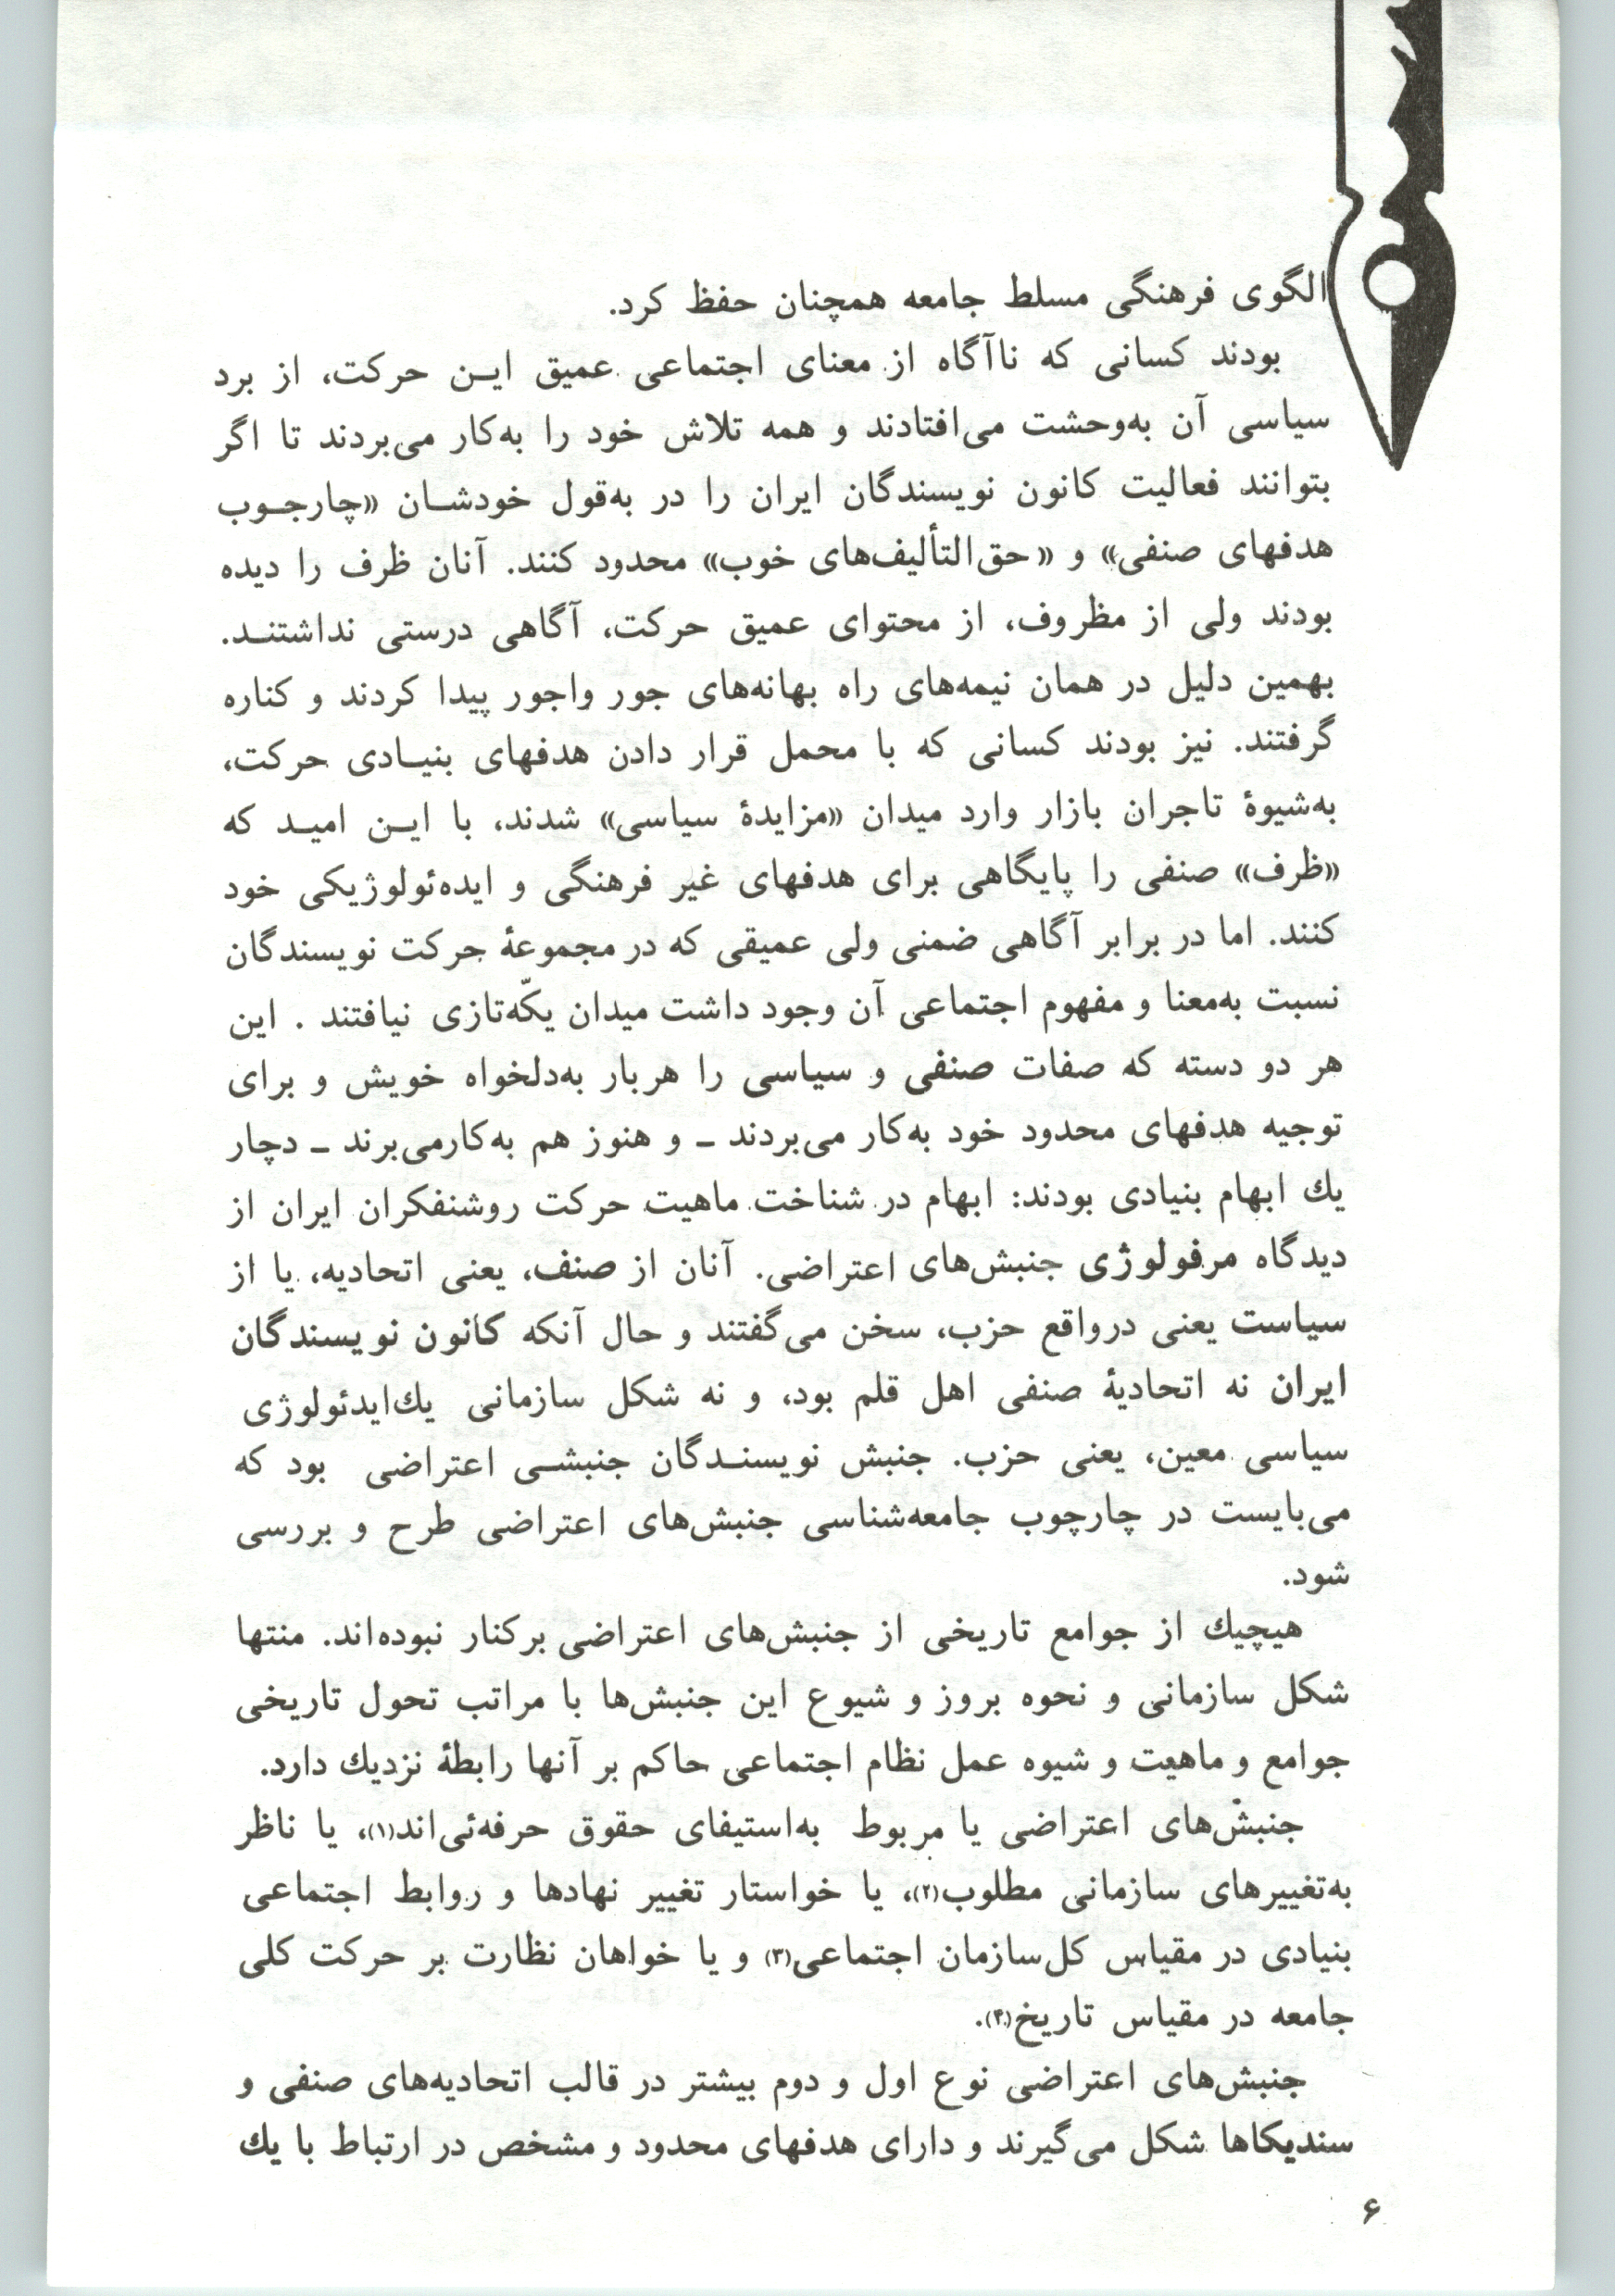 الگوی فرهنگی مسلط جامعه همچنان حفظ کرد.
بودند کسانی که ناآگاه از معنای اجتماعی عمیق ایـن حرکت، از برد
سیاسی آن به‌وحشت می‌افتادند و همه تلاش خود را به‌کار می‌بردند تا اگر
بتوانند فعالیت کانون نویسندگان ایران را در به‌قول خودشـان «چارجـوب
هدفهای صنفی» و «حق‌التألیف‌های خوب» محدود کنند. آنان ظرف را دیده
بودند ولی از مظروف، از محتوای عمیق حرکت، آگاهی درستی نداشتنـد.
بهمین دلیل در همان نیمه‌های راه بهانه‌های جور واجور پیدا کردند و کناره
گرفتند. نیز بودند کسانی که با محمل قرار دادن هدفهای بنیـادی حرکت،
به‌شیوهٔ تاجران بازار وارد میدان «مزایدهٔ سیاسی» شدند، با ایـن امیـد که
«ظرف» صنفی را پایگاهی برای هدفهای غیر فرهنگی و ایده‌ئولوژیکی خود
کنند. اما در برابر آگاهی ضمنی ولی عمیقی که در مجموعهٔ حرکت نویسندگان
نسبت به‌معنا و مفهوم اجتماعی آن وجود داشت میدان یکّه‌تازی نیافتند . این
هر دو دسته که صفات صنفی و سیاسی را هربار به‌دلخواه خویش و برای
توجیه هدفهای محدود خود به‌کار می‌بردند ـ و هنوز هم به‌کارمی‌برند ـ دچار
یك ابهام بنیادی بودند: ابهام در شناخت ماهیت حرکت روشنفکران ایران از
دیدگاه مرفولوژی جنبش‌های اعتراضی. آنان از صنف، یعنی اتحادیه، یا از
سیاست یعنی درواقع حزب، سخن می‌گفتند و حال آنکه کانون نویسندگان
ایران نه اتحادیهٔ صنفی اهل قلم بود، و نه شکل سازمانی یك‌ایدئولوژی
سیاسی معین، یعنی حزب. جنبش نویسنـدگان جنبشـی اعتراضی بود که
می‌بایست در چارچوب جامعه‌شناسی جنبش‌های اعتراضی طرح و بررسی
شود.
هیچیك از جوامع تاریخی از جنبش‌های اعتراضی برکنار نبوده‌اند. منتها
شکل سازمانی و نحوه بروز و شیوع این جنبش‌ها با مراتب تحول تاریخی
جوامع و ماهیت و شیوه عمل نظام اجتماعی حاکم بر آنها رابطهٔ نزدیك دارد.
جنبش‌های اعتراضی یا مربوط به‌استیفای حقوق حرفه‌ئی‌اند(۱)، یا ناظر
به‌تغییرهای سازمانی مطلوب(۲)، یا خواستار تغییر نهادها و روابط اجتماعی
بنیادی در مقیاس کل‌سازمان اجتماعی(۳) و یا خواهان نظارت بر حرکت کلی
جامعه در مقیاس تاریخ(۴).
جنبش‌های اعتراضی نوع اول و دوم بیشتر در قالب اتحادیه‌های صنفی و
سندیکاها شکل می‌گیرند و دارای هدفهای محدود و مشخص در ارتباط با یك
۶